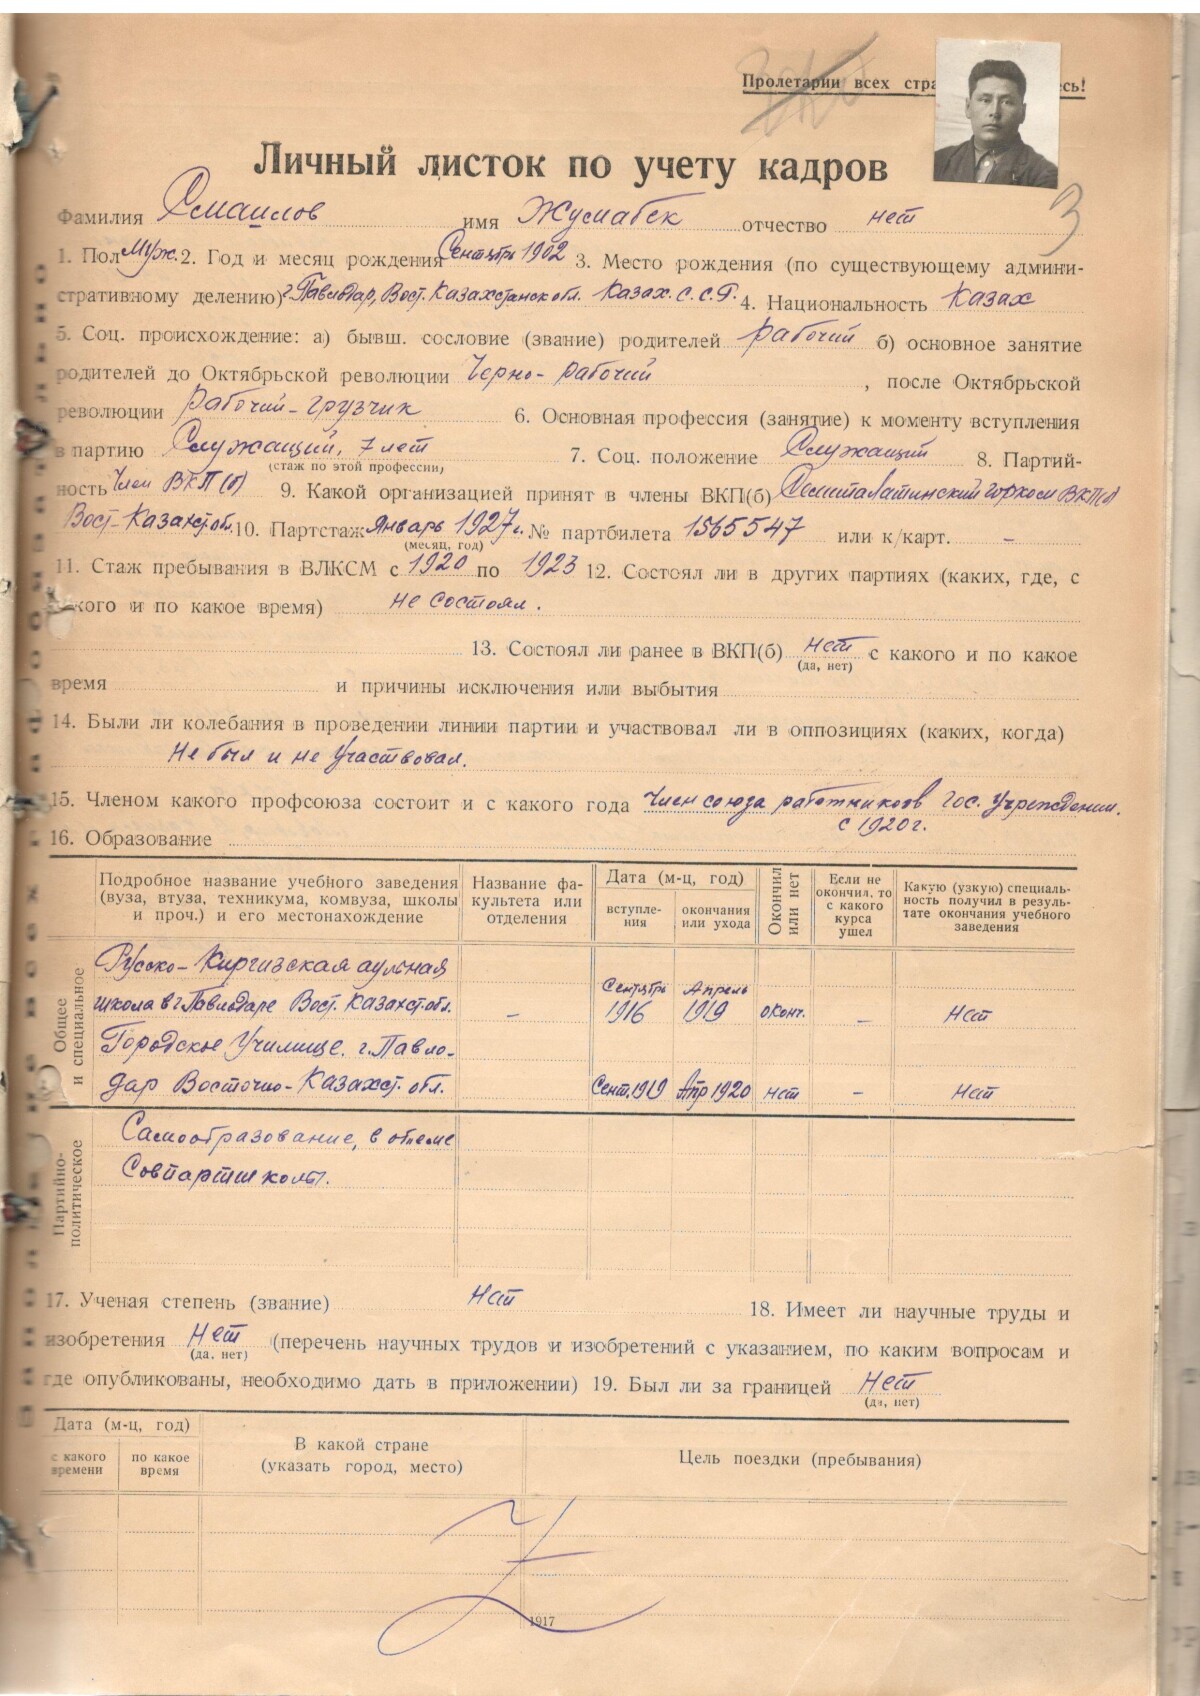 Пролетарии всех стра есь!
Личный листок по учету кадров
3
Фамилия Смаилов имя Жусмабек отчество нет
1. Пол Муж. 2. Год и месяц рождения Сентябрь 1902 3. Место рождения (по существующему админи-
стративному делению) г. Павлодар, Вост. Казахстанск обл. Казах. С.С.Р. 4. Национальность Казах
5. Соц. происхождение: а) бывш. сословие (звание) родителей рабочий б) основное занятие
родителей до Октябрьской революции Черно-рабочий , после Октябрьской
революции рабочий-грузчик 6. Основная профессия (занятие) к моменту вступления
в партию Служащий, 7 лет 7. Соц. положение Служащий 8. Партий-
(стаж по этой профессии)
ность Член ВКП(б) 9. Какой организацией принят в члены ВКП(б) Семипалатинский горком ВКП(б)
Вост-Казахст.обл. 10. Партстаж январь 1927 г. № партбилета 1565547 или к/карт. –
(месяц, год)
11. Стаж пребывания в ВЛКСМ с 1920 по 1923 12. Состоял ли в других партиях (каких, где, с
кого и по какое время) не состоял.
13. Состоял ли ранее в ВКП(б) нет с какого и по какое
(да, нет)
время и причины исключения или выбытия
14. Были ли колебания в проведении линии партии и участвовал ли в оппозициях (каких, когда)
не был и не участвовал.
15. Членом какого профсоюза состоит и с какого года Член союза работников гос. учреждении.
с 1920 г.
16. Образование
Подробное название учебного заведения (вуза, втуза, техникума, комвуза, школы и проч.) и его местонахождение
Название факультета или отделения
Дата (м-ц, год)
вступле-
ния
окончания
или ухода
Окончил
или нет
Если не
окончил, то
с какого
курса
ушел
Какую (узкую) специаль-
ность получил в резуль-
тате окончания учебного
заведения
Общее
и специальное
Русско-Киргизская аульная
школа в г. Павлодаре Вост. Казахст. обл. – Сентябрь 1916 Апрель 1919 оконч. – Нет
Городское Училище. г. Павло-
дар Восточно-Казахст. обл. Сент. 1919 Апр 1920 нет – Нет
Партийно-
политическое
Самообразование, в обеме
Совпартшколы.
17. Ученая степень (звание) Нет 18. Имеет ли научные труды и
изобретения Нет (перечень научных трудов и изобретений с указанием, по каким вопросам и
(да, нет)
где опубликованы, необходимо дать в приложении) 19. Был ли за границей Нет
(да, нет)
Дата (м-ц, год)
с какого
времени
по какое
время
В какой стране
(указать город, место)
Цель поездки (пребывания)
1917